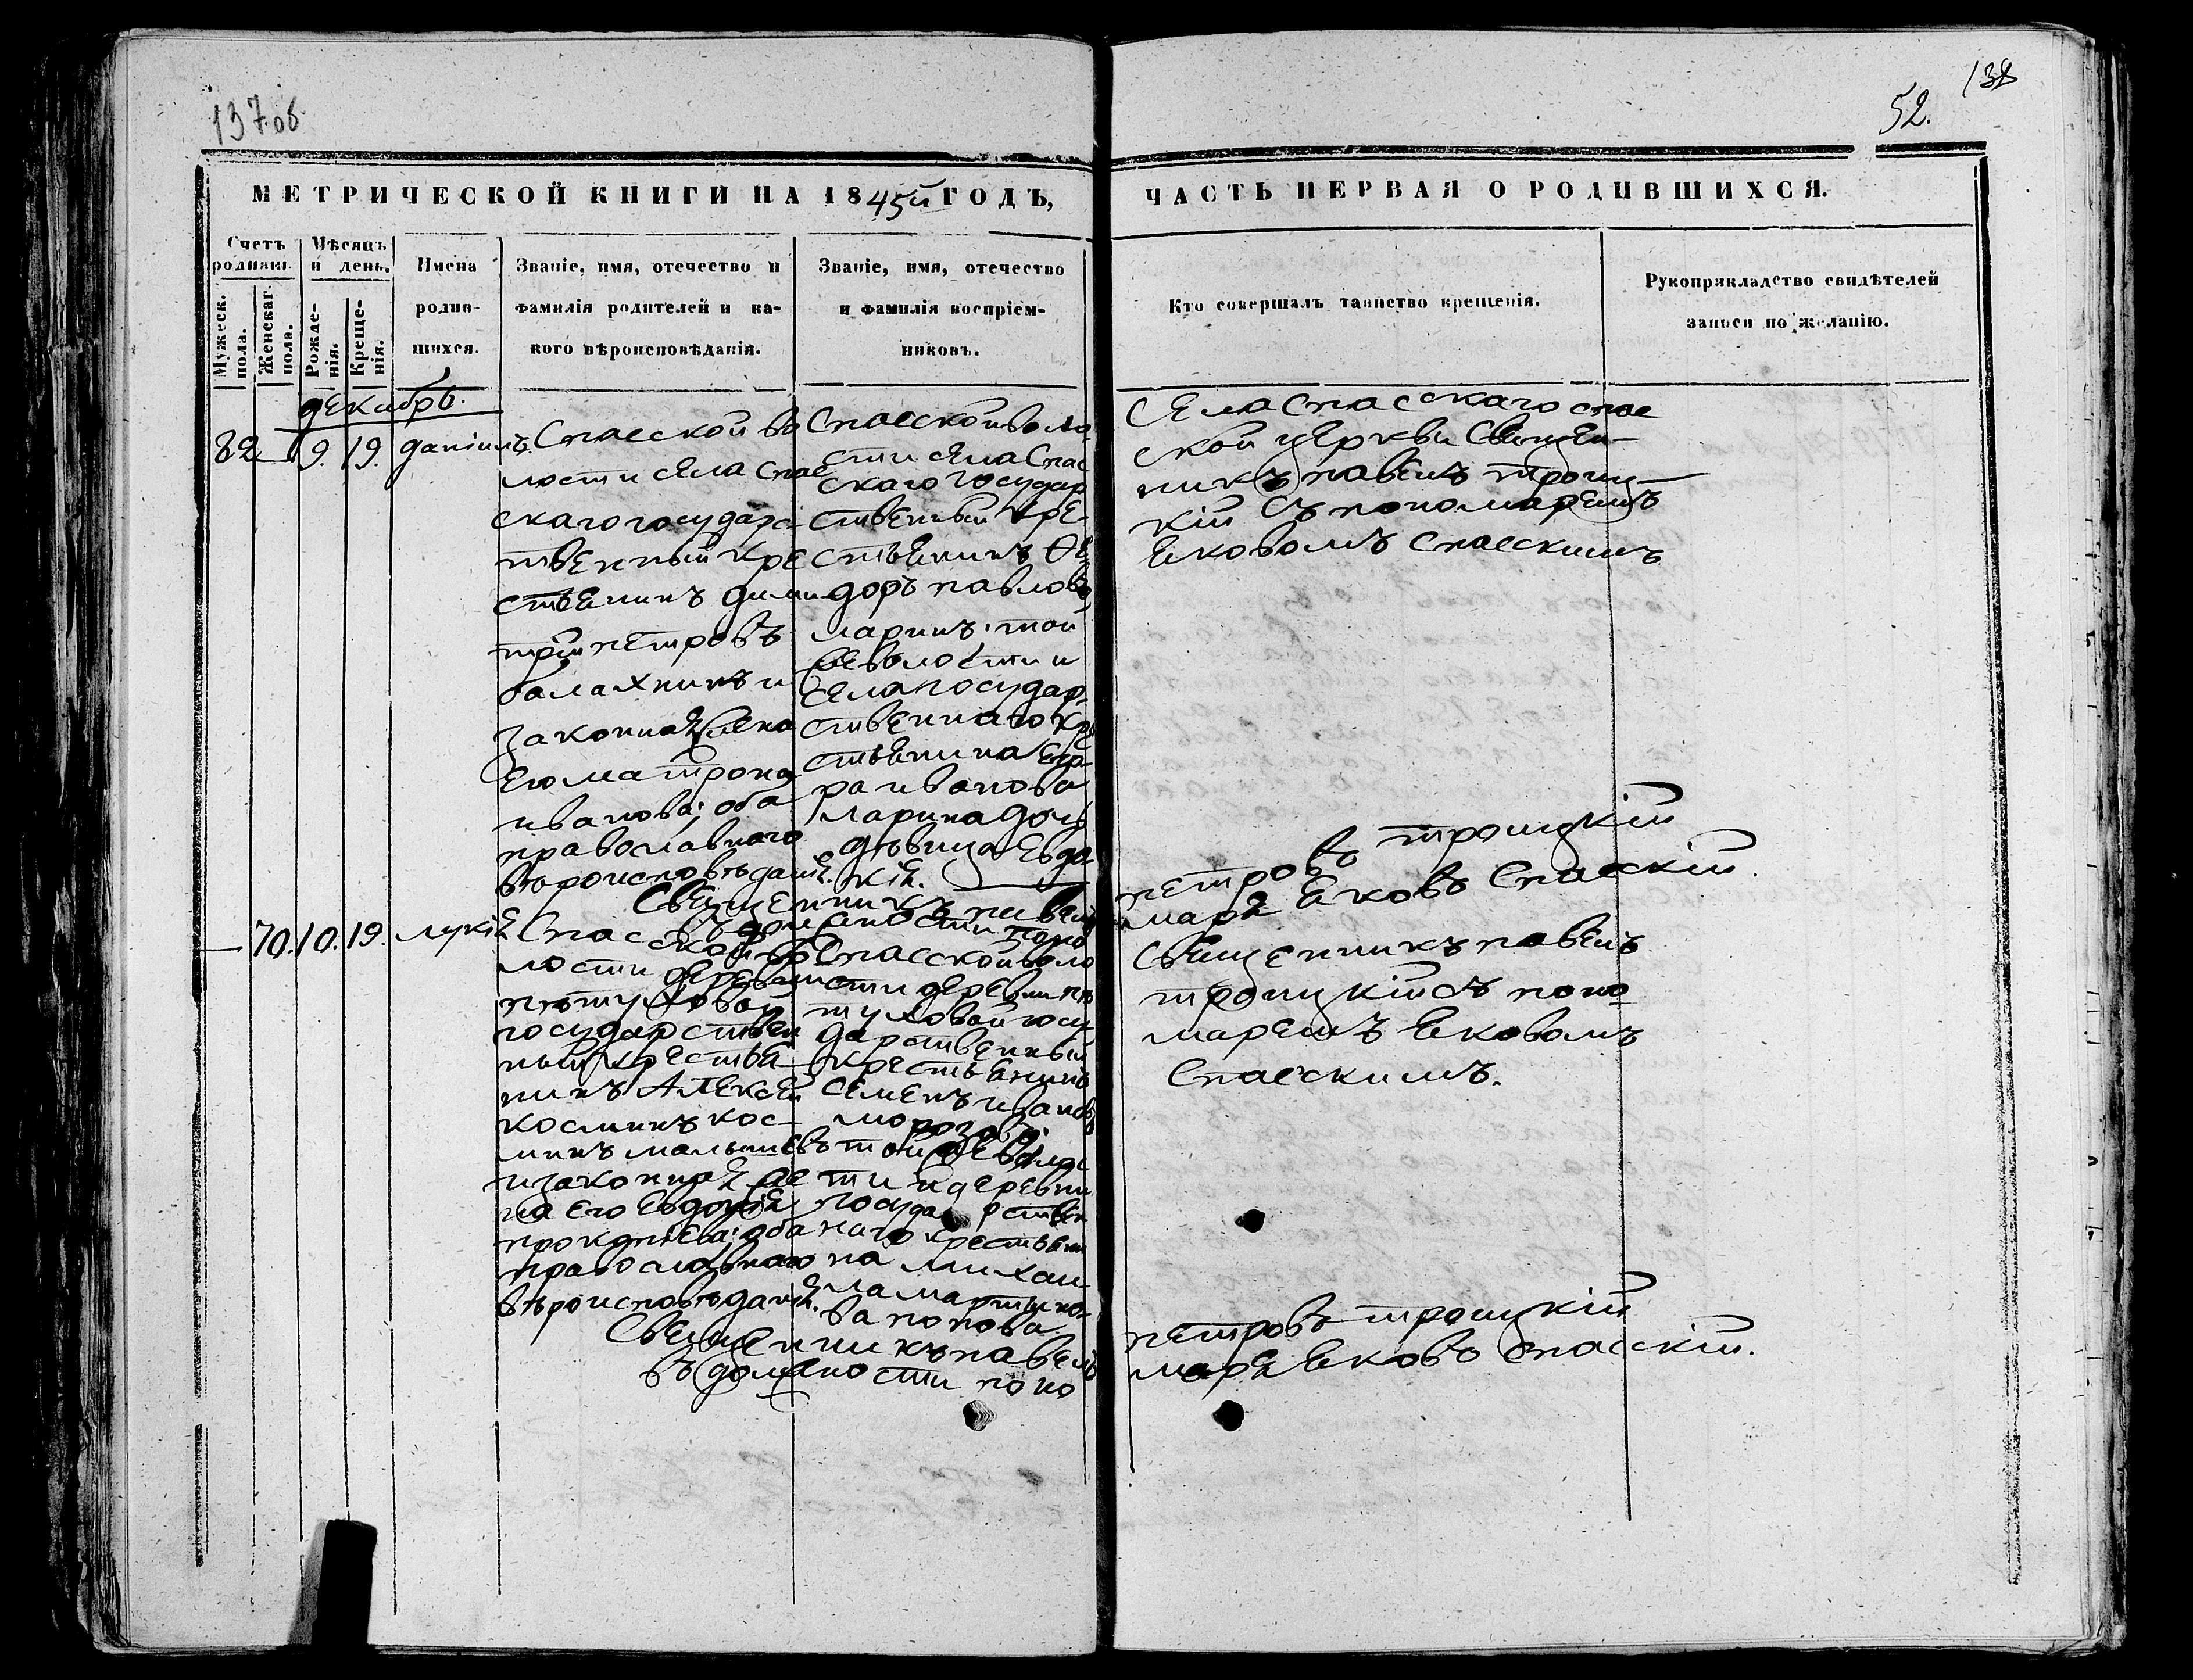 137 об.
138
52.
МЕТРИЧЕСКОЙ КНИГИ НА 1845й ГОДЪ,
ЧАСТЬ ПЕРВАЯ О РОДИВШИХСЯ.
Счетъ родивш.
Мужеск. пола.
Женскаг. пола.
Мѣсяцъ и день.
Рожде-
нія.
Креще-
нія.
Имена
родив-
шихся.
Званіе, имя, отечество и
фамилія родителей и ка-
кого вѣроисповѣданія.
Званіе, имя, отечество
и фамилія воспріем-
никовъ.
Кто совершалъ таинство крещенія.
Рукоприкладство свидѣтелей
записи по желанію.
декабрь.
82 — 9. 19. даніилъ
Спасской во
лости села Спас
скаго государс
твенный кре
стьянинъ дими
трій петровъ
балахнинъ и
законная жена
его матрона
иванова; оба
православнаго
вѣроисповѣданія.
Спасской воло
сти села Спас
скаго государ
ственный кре-
стьянинъ Ѳе
доръ павловъ
ларинъ; той
же волости и
села государ
ственнаго кре
стьянина Ега-
ра иванова
ларина дочь
дѣвица Евдо-
кія.
Села Спасскаго спас
ской церкви Священ-
никъ павелъ трои-
кій съ пономаремъ
Яковомъ Спасскимъ
Священникъ павелъ петровъ троицкій
въ должности пономаря Яковъ Спасскій.
— 70. 10. 19. лукія
Спасской во
лости деревни
пѣтуховой
государствен
ный крестья
нинъ Алексей
косминъ кос-
минъ малышевъ
и законная же
на его Евдокія
прокдпіева; оба
православнаго
вѣроисповѣданія.
Спасской воло
сти деревни пѣ
туховой госу
дарственный
крестьянинъ
Семенъ ивановъ
морозовъ;
той же воло
сти и деревни
государствен
наго крестьяни
на михаи-
ла мартыно-
ва попова
Священникъ павелъ
троицкій съ поно
маремъ Яковомъ
Спасскимъ.
Священникъ павелъ петровъ троицкій
въ должности пономаря Яковъ Спасскій.